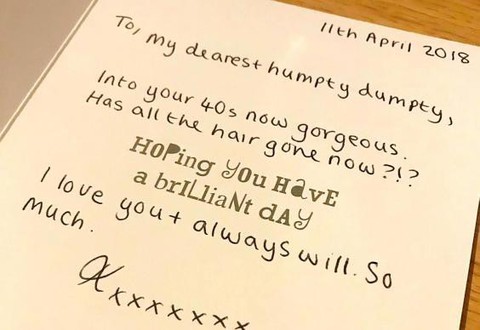 11th April 2018
To, my dearest humpty dumpty,
Into your 40s now gorgeous.
Has all the hair gone now?!?
HOPing you HavE
a brILliaNt dAy
I love you + always will. So
much.
Xxxxxxxx